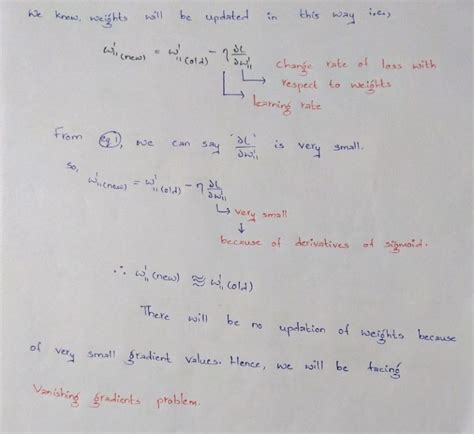 We know, weights will be updated in this way i.e.,
w¹₁₁(new) = w¹₁₁(old) - η ∂L/∂w¹₁₁
change rate of loss with
respect to weights
learning rate
From eq 1, we can say '∂L/∂w¹₁₁' is very small.
so,
w¹₁₁(new) = w¹₁₁(old) - η ∂L/∂w¹₁₁
very small
because of derivatives of sigmoid.
∴ w¹₁₁(new) ≈ w¹₁₁(old)
There will be no updation of weights because
of very small gradient values. Hence, we will be facing
Vanishing gradients problem.